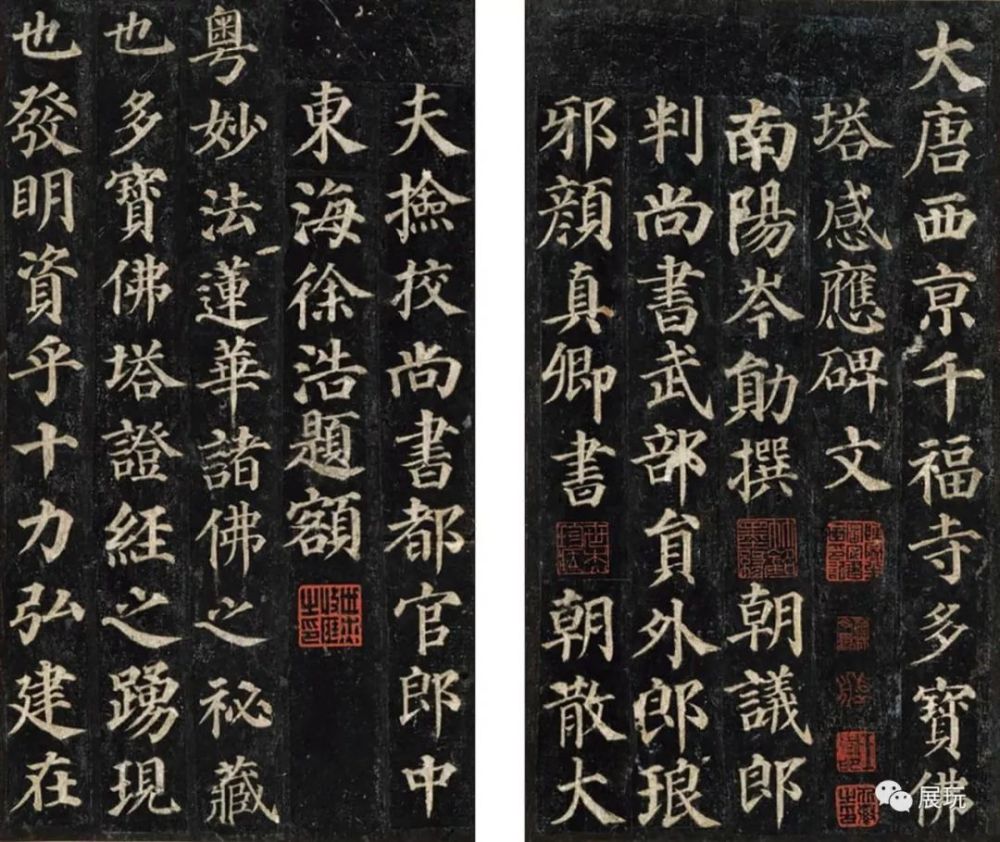 大唐西京千福寺多寶佛
塔感應碑文
南陽岑勛撰 朝議郎
判尚書武部員外郎琅
邪顏真卿書 朝散大
夫撿挍尚書都官郎中
東海徐浩題額
粵妙法蓮華諸佛之祕藏
也多寶佛塔證經之踴現
也發明資乎十力弘建在
展玩